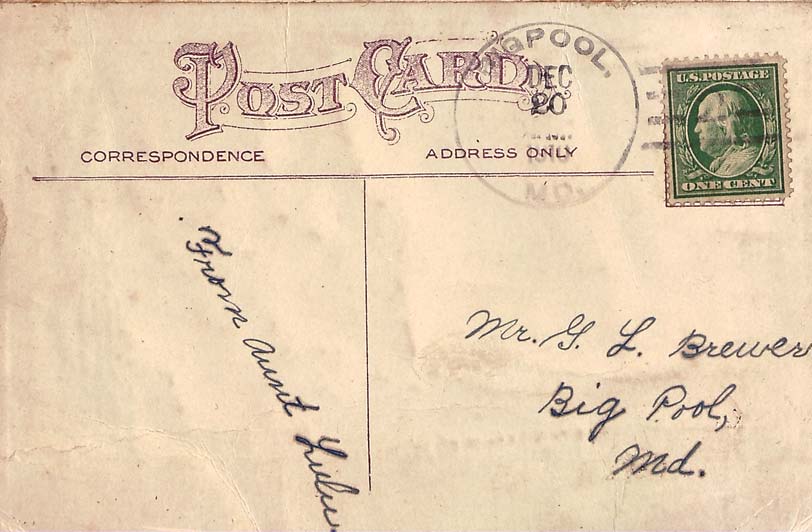 POST CARD
CORRESPONDENCE
ADDRESS ONLY
DEC
20
MD.
U.S. POSTAGE
ONE CENT
From Aunt Lulu
Mr. G. L. Brewer
Big Pool,
Md.